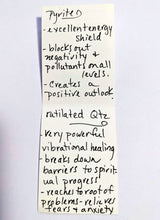 Pyrite
- excellent energy
shield
- blocks out
negativity &
pollutants on all
levels.
- Creates a
positive outlook.
rutilated Qtz
- very powerful
vibrational healing
- breaks down
barriers to spirit-
ual progress
- reaches to root of
problems - relieves
fears & anxiety